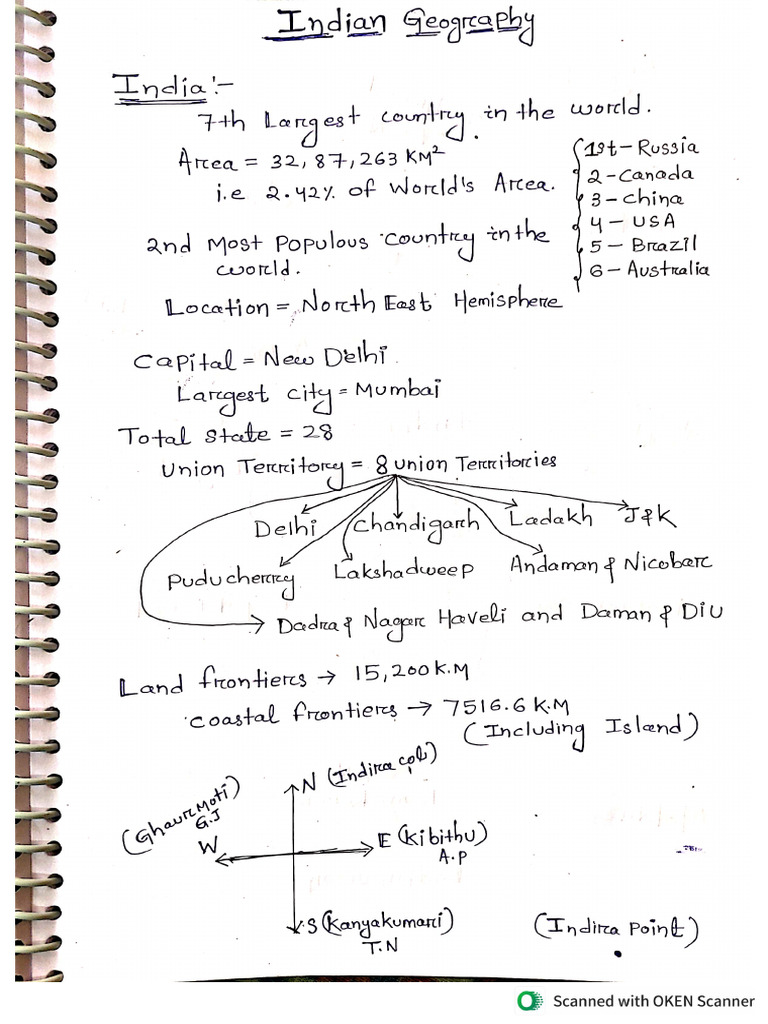 Indian Geography
India :-
7th Largest country in the world.
Area = 32,87,263 KM²
i.e 2.42% of World's Area.
1st - Russia
2 - Canada
3 - China
4 - USA
5 - Brazil
6 - Australia
2nd Most Populous Country in the
world.
Location = North East Hemisphere
Capital = New Delhi
Largest city = Mumbai
Total state = 28
Union Territory = 8 union Territories
Delhi Chandigarh Ladakh J&K
Puducherry Lakshadweep Andaman & Nicobar
→ Dadra & Nagar Haveli and Daman & Diu
Land frontiers → 15,200 K.M
Coastal frontiers → 7516.6 K.M
(Including Island)
N (Indira col)
(Ghaur Moti)
G.J
W
E (Kibithu)
A.P
S (Kanyakumari)
T.N
(Indira Point)
Scanned with OKEN Scanner